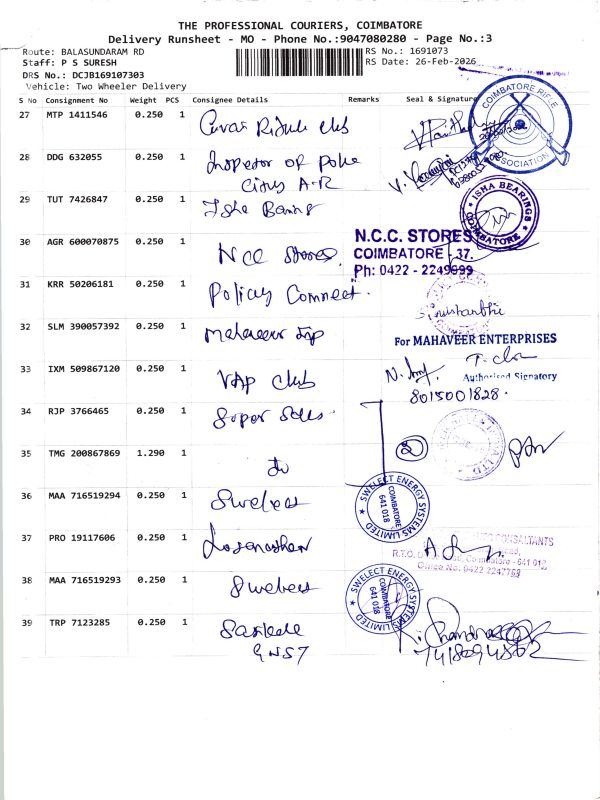 THE PROFESSIONAL COURIERS, COIMBATORE
Delivery Runsheet - MO - Phone No.:9047080280 - Page No.:3
Route: BALASUNDARAM RD
RS No.: 1691073
Staff: P S SURESH
RS Date: 26-Feb-2026
DRS No.: DCJB169107303
Vehicle: Two Wheeler Delivery
S No Consignment No Weight PCS Consignee Details Remarks Seal & Signature
27 MTP 1411546 0.250 1
COIMBATORE RIFLE ASSOCIATION
28 DDG 632055 0.250 1 Inspector OF Police
City A.R
29 TUT 7426847 0.250 1 Isha Barings
ISHA BEARINGS COIMBATORE
30 AGR 600070875 0.250 1 NCC Stores
N.C.C. STORES
COIMBATORE - 37.
Ph: 0422 - 2249699
31 KRR 50206181 0.250 1 Policy Connect
32 SLM 390057392 0.250 1 Mahaveer
For MAHAVEER ENTERPRISES
Authorised Signatory
33 IXM 509867120 0.250 1 VAP Club
8015001828
34 RJP 3766465 0.250 1 Super Sales
35 TMG 200867869 1.290 1 do
2
36 MAA 716519294 0.250 1 Swelect
SWELECT ENERGY SYSTEMS LIMITED
COIMBATORE
641 018
37 PRO 19117606 0.250 1
CONSULTANTS
R.T.O.
Road, Coimbatore - 641 018
Office No: 0422 2247793
38 MAA 716519293 0.250 1 Swelect
SWELECT ENERGY SYSTEMS LIMITED
COIMBATORE
641 018
39 TRP 7123285 0.250 1